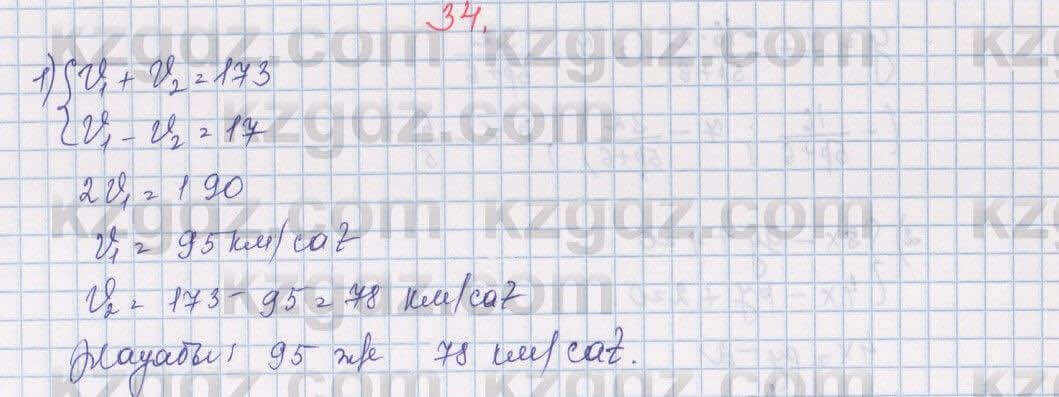 34.
1) { v₁ + v₂ = 173
{ v₁ - v₂ = 17
2v₁ = 190
v₁ = 95 км/сағ
v₂ = 173 - 95 = 78 км/сағ
Жауабы: 95 және 78 км/сағ.
kzgdz.com kzgdz.com kzgdz.com
kzgdz.com kzgdz.com
kzgdz.com kzgdz.com kzgdz.com
kzgdz.com kzgdz.com
kzgdz.com kzgdz.com kzgdz.com